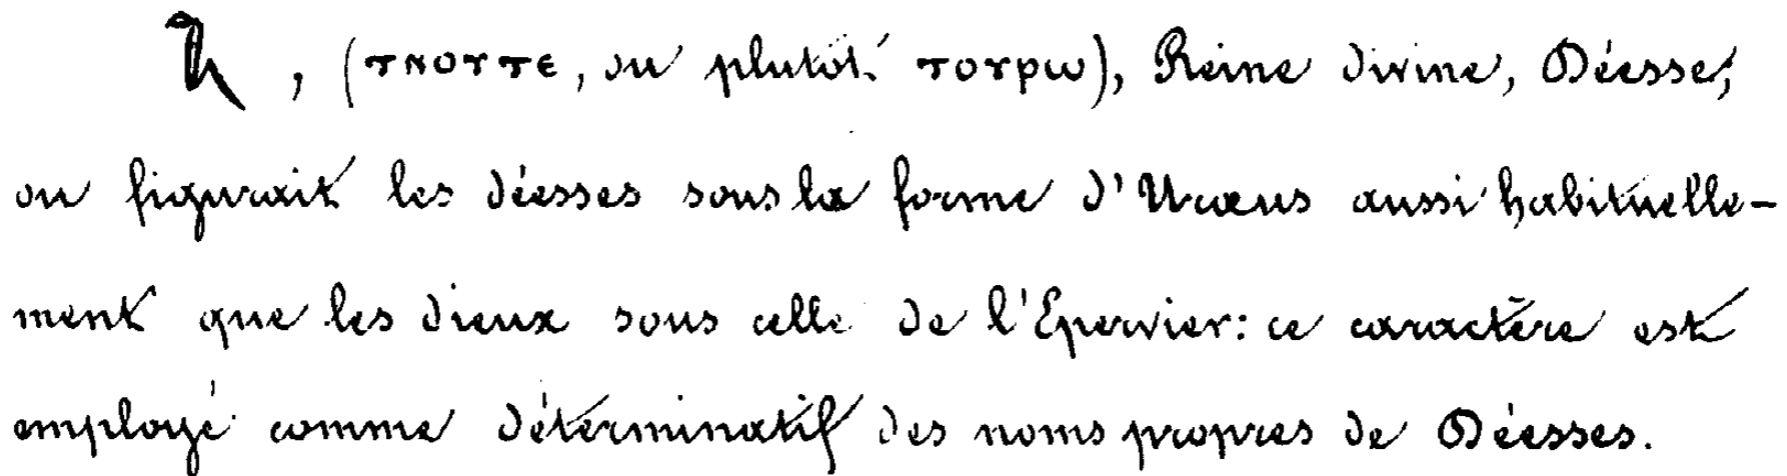 𓆗, (ⲧⲛⲟⲩⲧⲉ, ou plutôt ⲧⲟⲩⲣⲱ), Reine divine, Déesse;
on figurait les déesses sous la forme d'Uraeus aussi habituelle-
ment que les dieux sous celle de l'Epervier: ce caractère est
employé comme déterminatif des noms propres de Déesses.